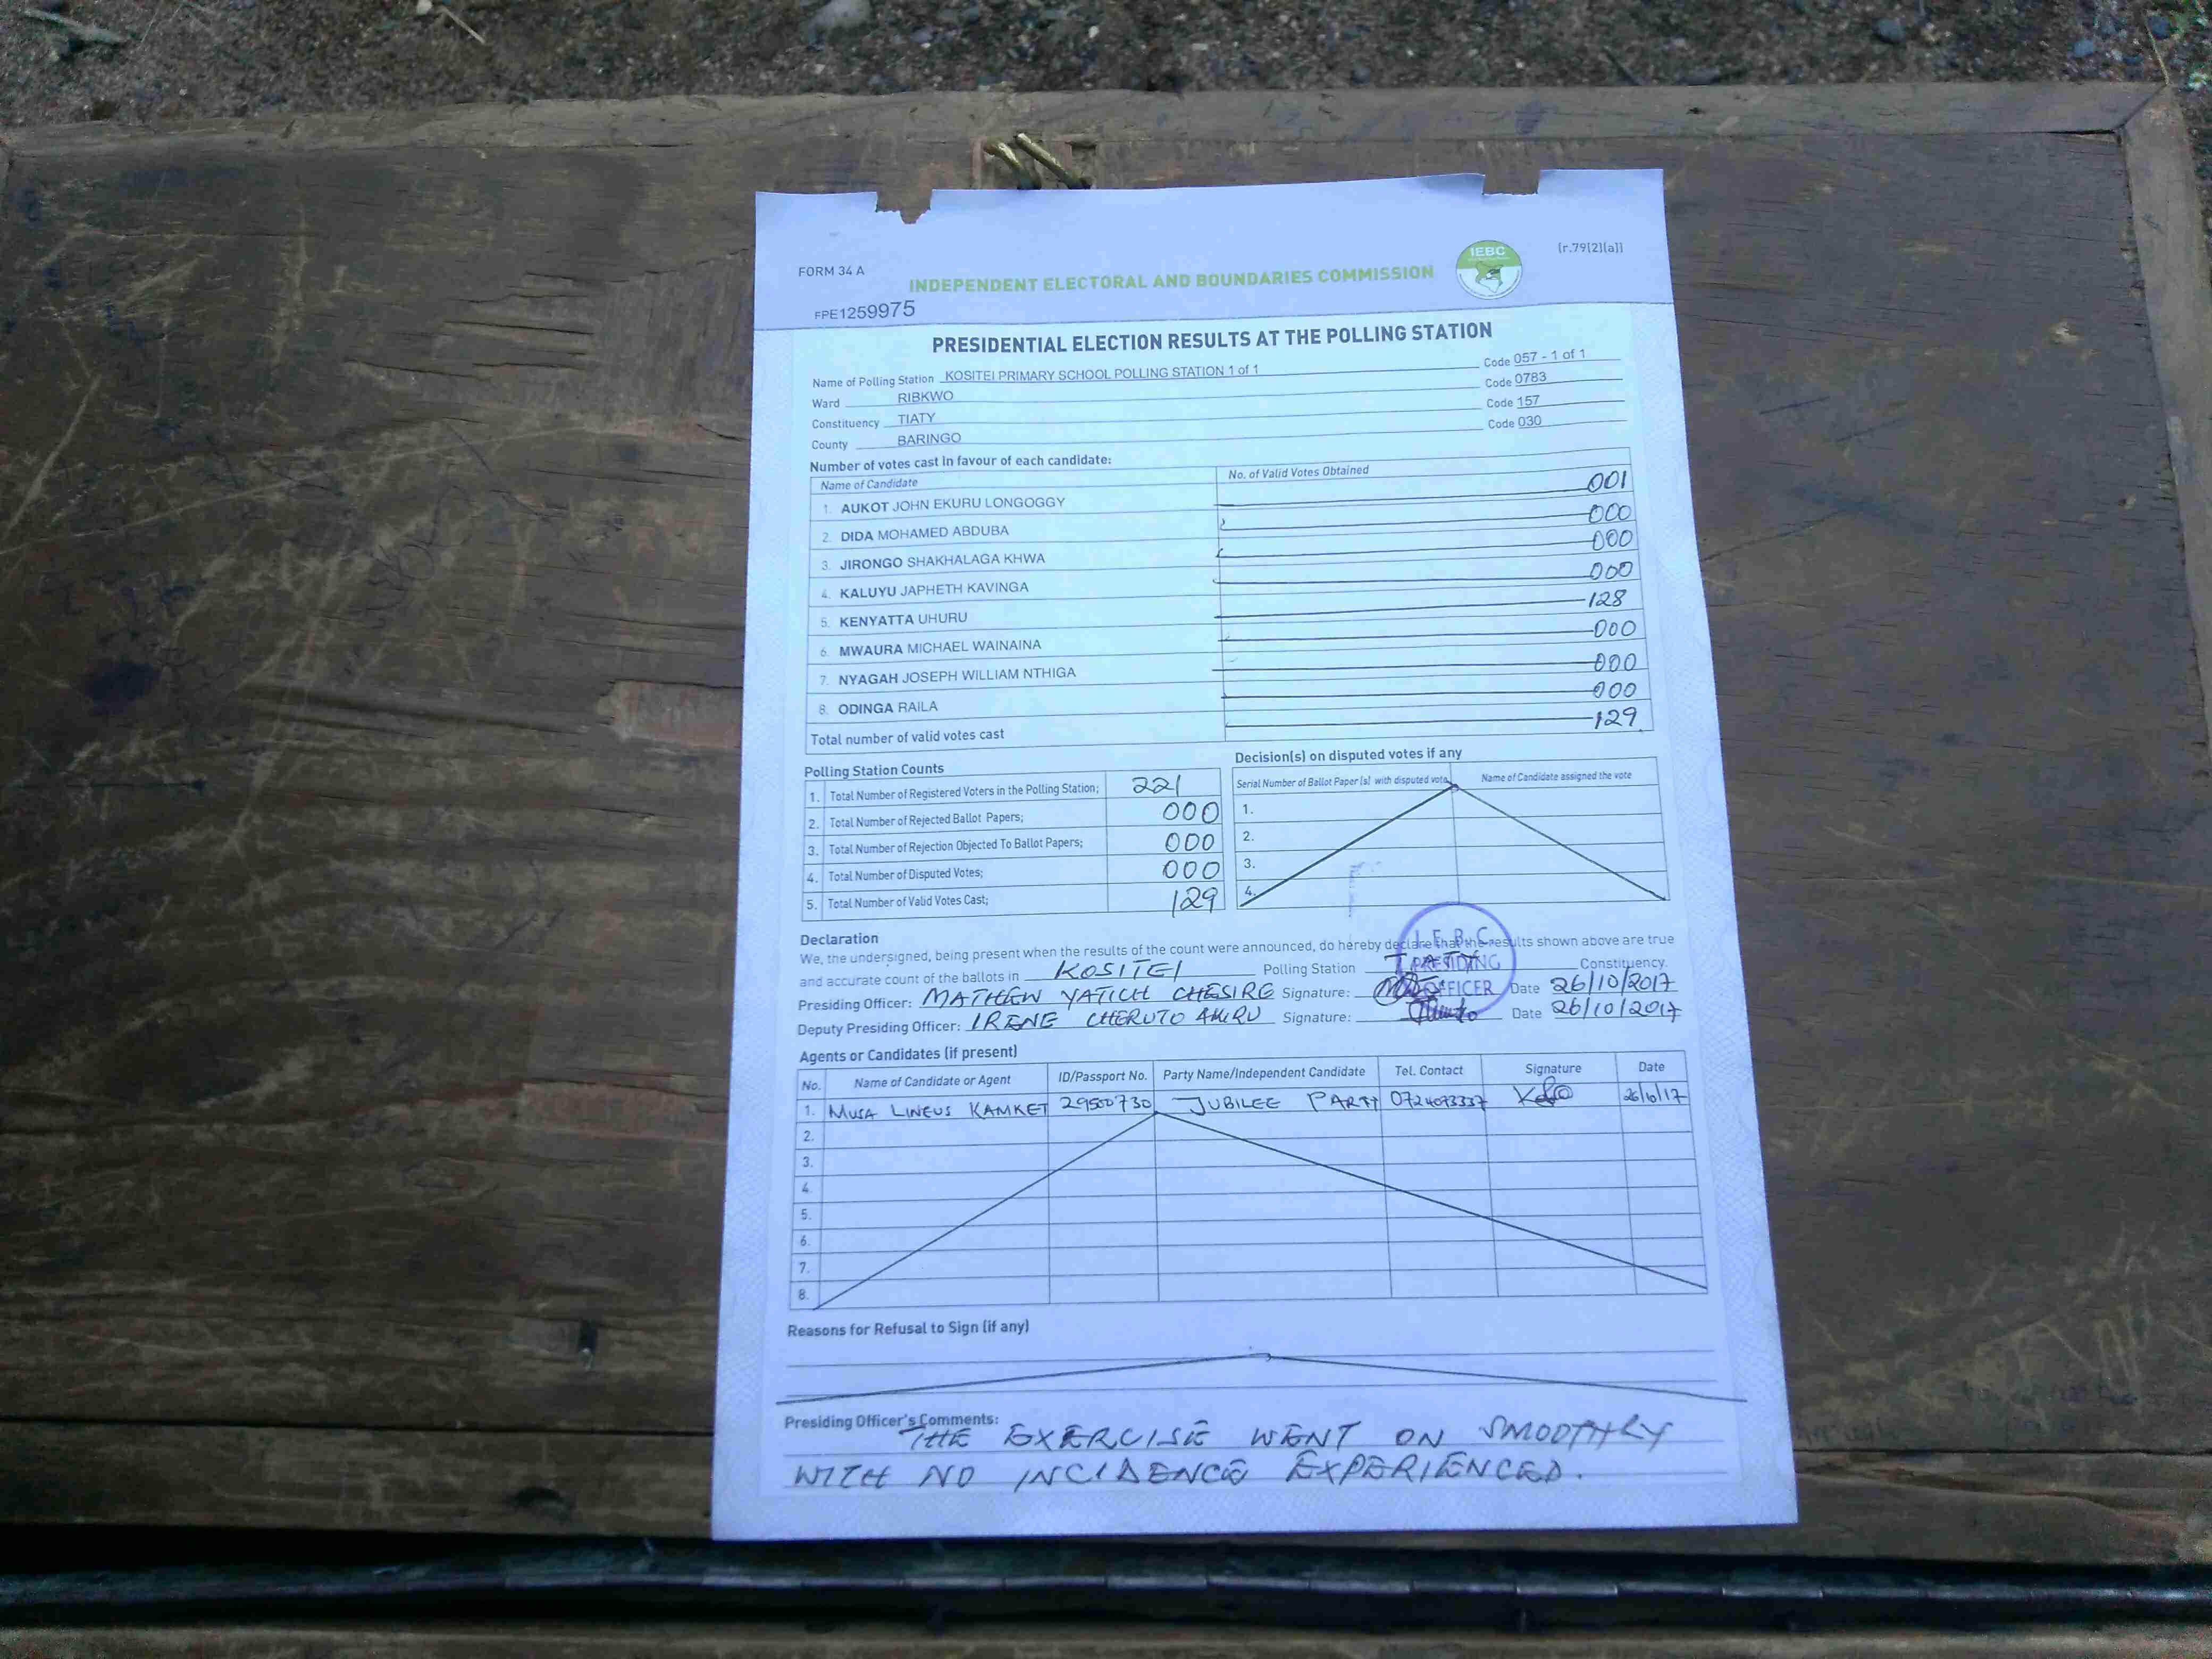 FORM 34 A
INDEPENDENT ELECTORAL AND BOUNDARIES COMMISSION
IEBC
(r.79(2)(a))
FPE1259975
PRESIDENTIAL ELECTION RESULTS AT THE POLLING STATION
Name of Polling Station KOSITEI PRIMARY SCHOOL POLLING STATION 1 of 1 Code 057 - 1 of 1
Ward RIBKWO Code 0783
Constituency TIATY Code 157
County BARINGO Code 030
Number of votes cast in favour of each candidate:
Name of Candidate No. of Valid Votes Obtained
1. AUKOT JOHN EKURU LONGOGGY 001
2. DIDA MOHAMED ABDUBA 000
3. JIRONGO SHAKHALAGA KHWA 000
4. KALUYU JAPHETH KAVINGA 000
5. KENYATTA UHURU 128
6. MWAURA MICHAEL WAINAINA 000
7. NYAGAH JOSEPH WILLIAM NTHIGA 000
8. ODINGA RAILA 000
Total number of valid votes cast 129
Polling Station Counts
1. Total Number of Registered Voters in the Polling Station; 221
2. Total Number of Rejected Ballot Papers; 000
3. Total Number of Rejection Objected To Ballot Papers; 000
4. Total Number of Disputed Votes; 000
5. Total Number of Valid Votes Cast; 129
Decision(s) on disputed votes if any
Serial Number of Ballot Paper (s) with disputed vote Name of Candidate assigned the vote
1.
2.
3.
4.
Declaration
We, the undersigned, being present when the results of the count were announced, do hereby declare that the results shown above are true
and accurate count of the ballots in KOSITEI Polling Station Constituency.
Presiding Officer: MATHEW YATICH CHESIRE Signature: Date 26/10/2017
Deputy Presiding Officer: IRENE CHERUTO Signature: Date 26/10/2017
I.E.B.C
PRESIDING
OFFICER
Agents or Candidates (if present)
No. Name of Candidate or Agent ID/Passport No. Party Name/Independent Candidate Tel. Contact Signature Date
1. MUSA LINEUS KAMKET 29500730 JUBILEE PARTY 0724073337 26/10/17
2.
3.
4.
5.
6.
7.
8.
Reasons for Refusal to Sign (if any)
Presiding Officer's Comments:
THE EXERCISE WENT ON SMOOTHLY
WITH NO INCIDENCE EXPERIENCED.